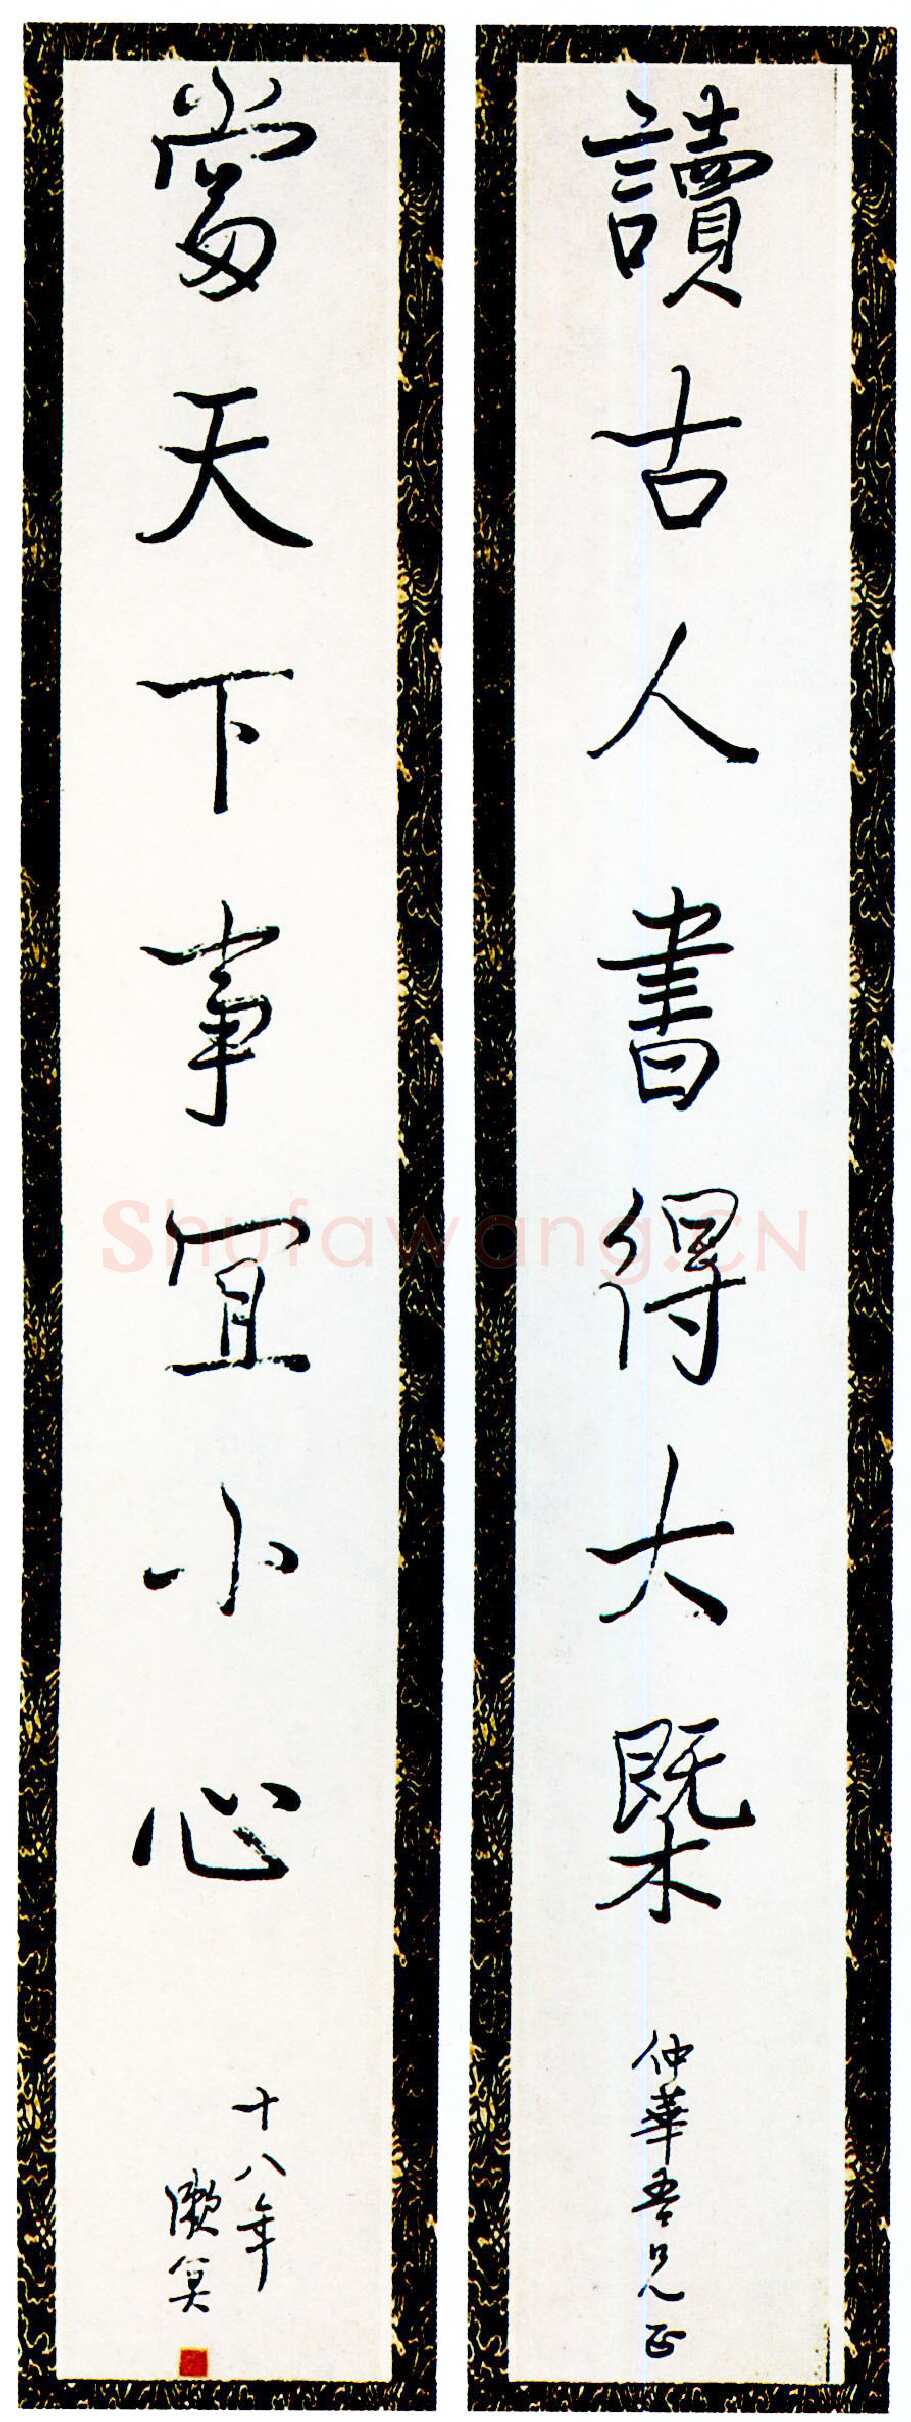 讀古人書得大槩
仲華吾兄正
當天下事宜小心
十八年
漱冥
Shufawang.CN